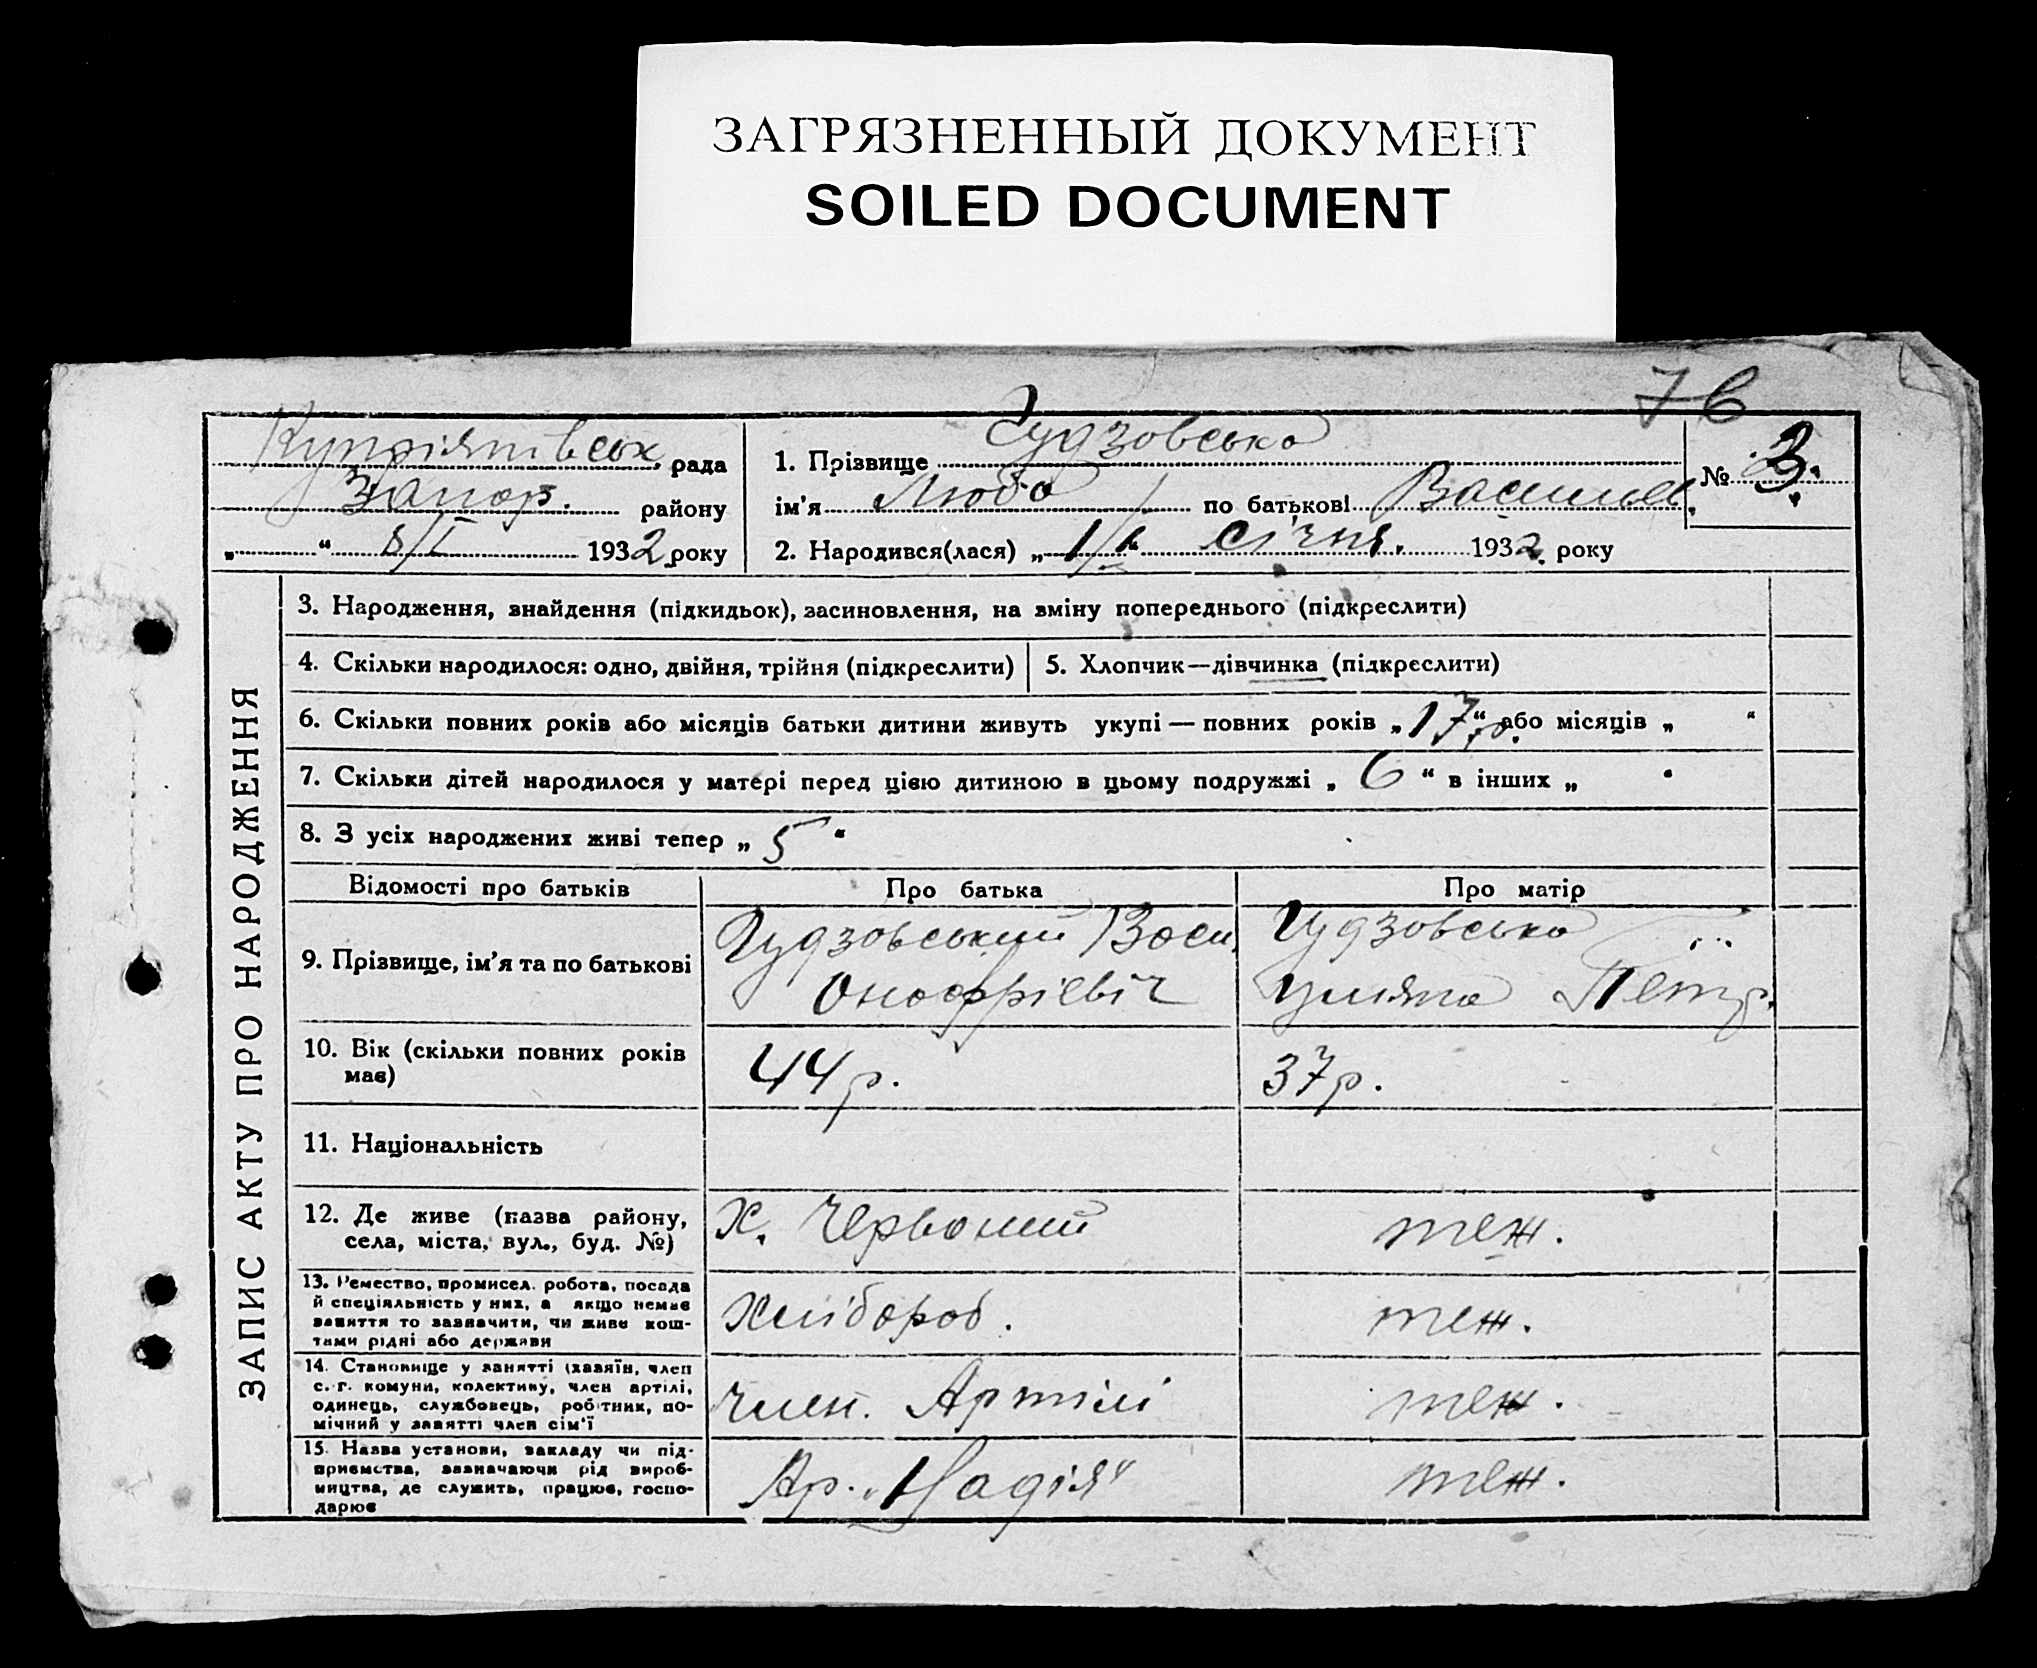 ЗАГРЯЗНЕННЫЙ ДОКУМЕНТ
SOILED DOCUMENT
76
Купріянівськ. рада
Запор. району
„ “ 8/I 1932 року
1. Прізвище Гудзовська
ім'я Люба по батькові Васильев.
№ 3.
2. Народився(лася) „ 1/I “ Січня. 1932 року
ЗАПИС АКТУ ПРО НАРОДЖЕННЯ
3. Народження, знайдення (підкидьок), засиновлення, на зміну попереднього (підкреслити)
4. Скільки народилося: одно, двійня, трійня (підкреслити) 5. Хлопчик—дівчинка (підкреслити)
6. Скільки повних років або місяців батьки дитини живуть укупі — повних років „ 17 р. “ або місяців „ “
7. Скільки дітей народилося у матері перед цією дитиною в цьому подружжі „ 6 “ в інших „ “
8. З усіх народжених живі тепер „ 5 “
Відомості про батьків Про батька Про матір
9. Прізвище, ім'я та по батькові
Гудзовський Васи.
Онофрієвіч
Гудзовська
Уляна Петр.
10. Вік (скільки повних років
має)
44 р.
37 р.
11. Національність
12. Де живе (назва району,
села, міста, вул., буд. №)
Х. Червоний
теж.
13. Ремество, промисел. робота, посада
й спеціяльність у них, а якщо немає
заняття то зазначити, чи живе кош-
тами рідні або держави
Хлібороб.
теж.
14. Становище у занятті (хазяїн, член
с.-г. комуни, колективу, член артілі,
одинець, службовець, робітник, по-
мічний у занятті член сім'ї
член. Артілі
теж.
15. Назва установи, закладу чи під-
приємства, зазначаючи рід вироб-
ництва, де служить, працює, госпо-
дарює
Ар. „Надія“
теж.